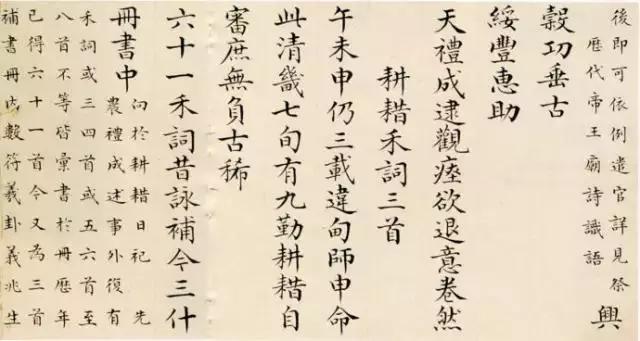 後即可依例遣官詳見祭
歷代帝王廟詩識語
興
穀功垂古
綏豐惠助
天禮成逮觀瘞欲退意卷然
耕耤禾詞三首
午未申仍三載違甸師申命
此清畿七旬有九勤耕耤自
審庶無負古稀
六十一禾詞昔詠補今三什
冊書中
向於耕耤日祀 先
農禮成述事外復有
禾詞或三四首或五六首至
八首不等皆彙書於冊歷年
已得六十一首今又為三首
補書冊内數符羲卦義兆生